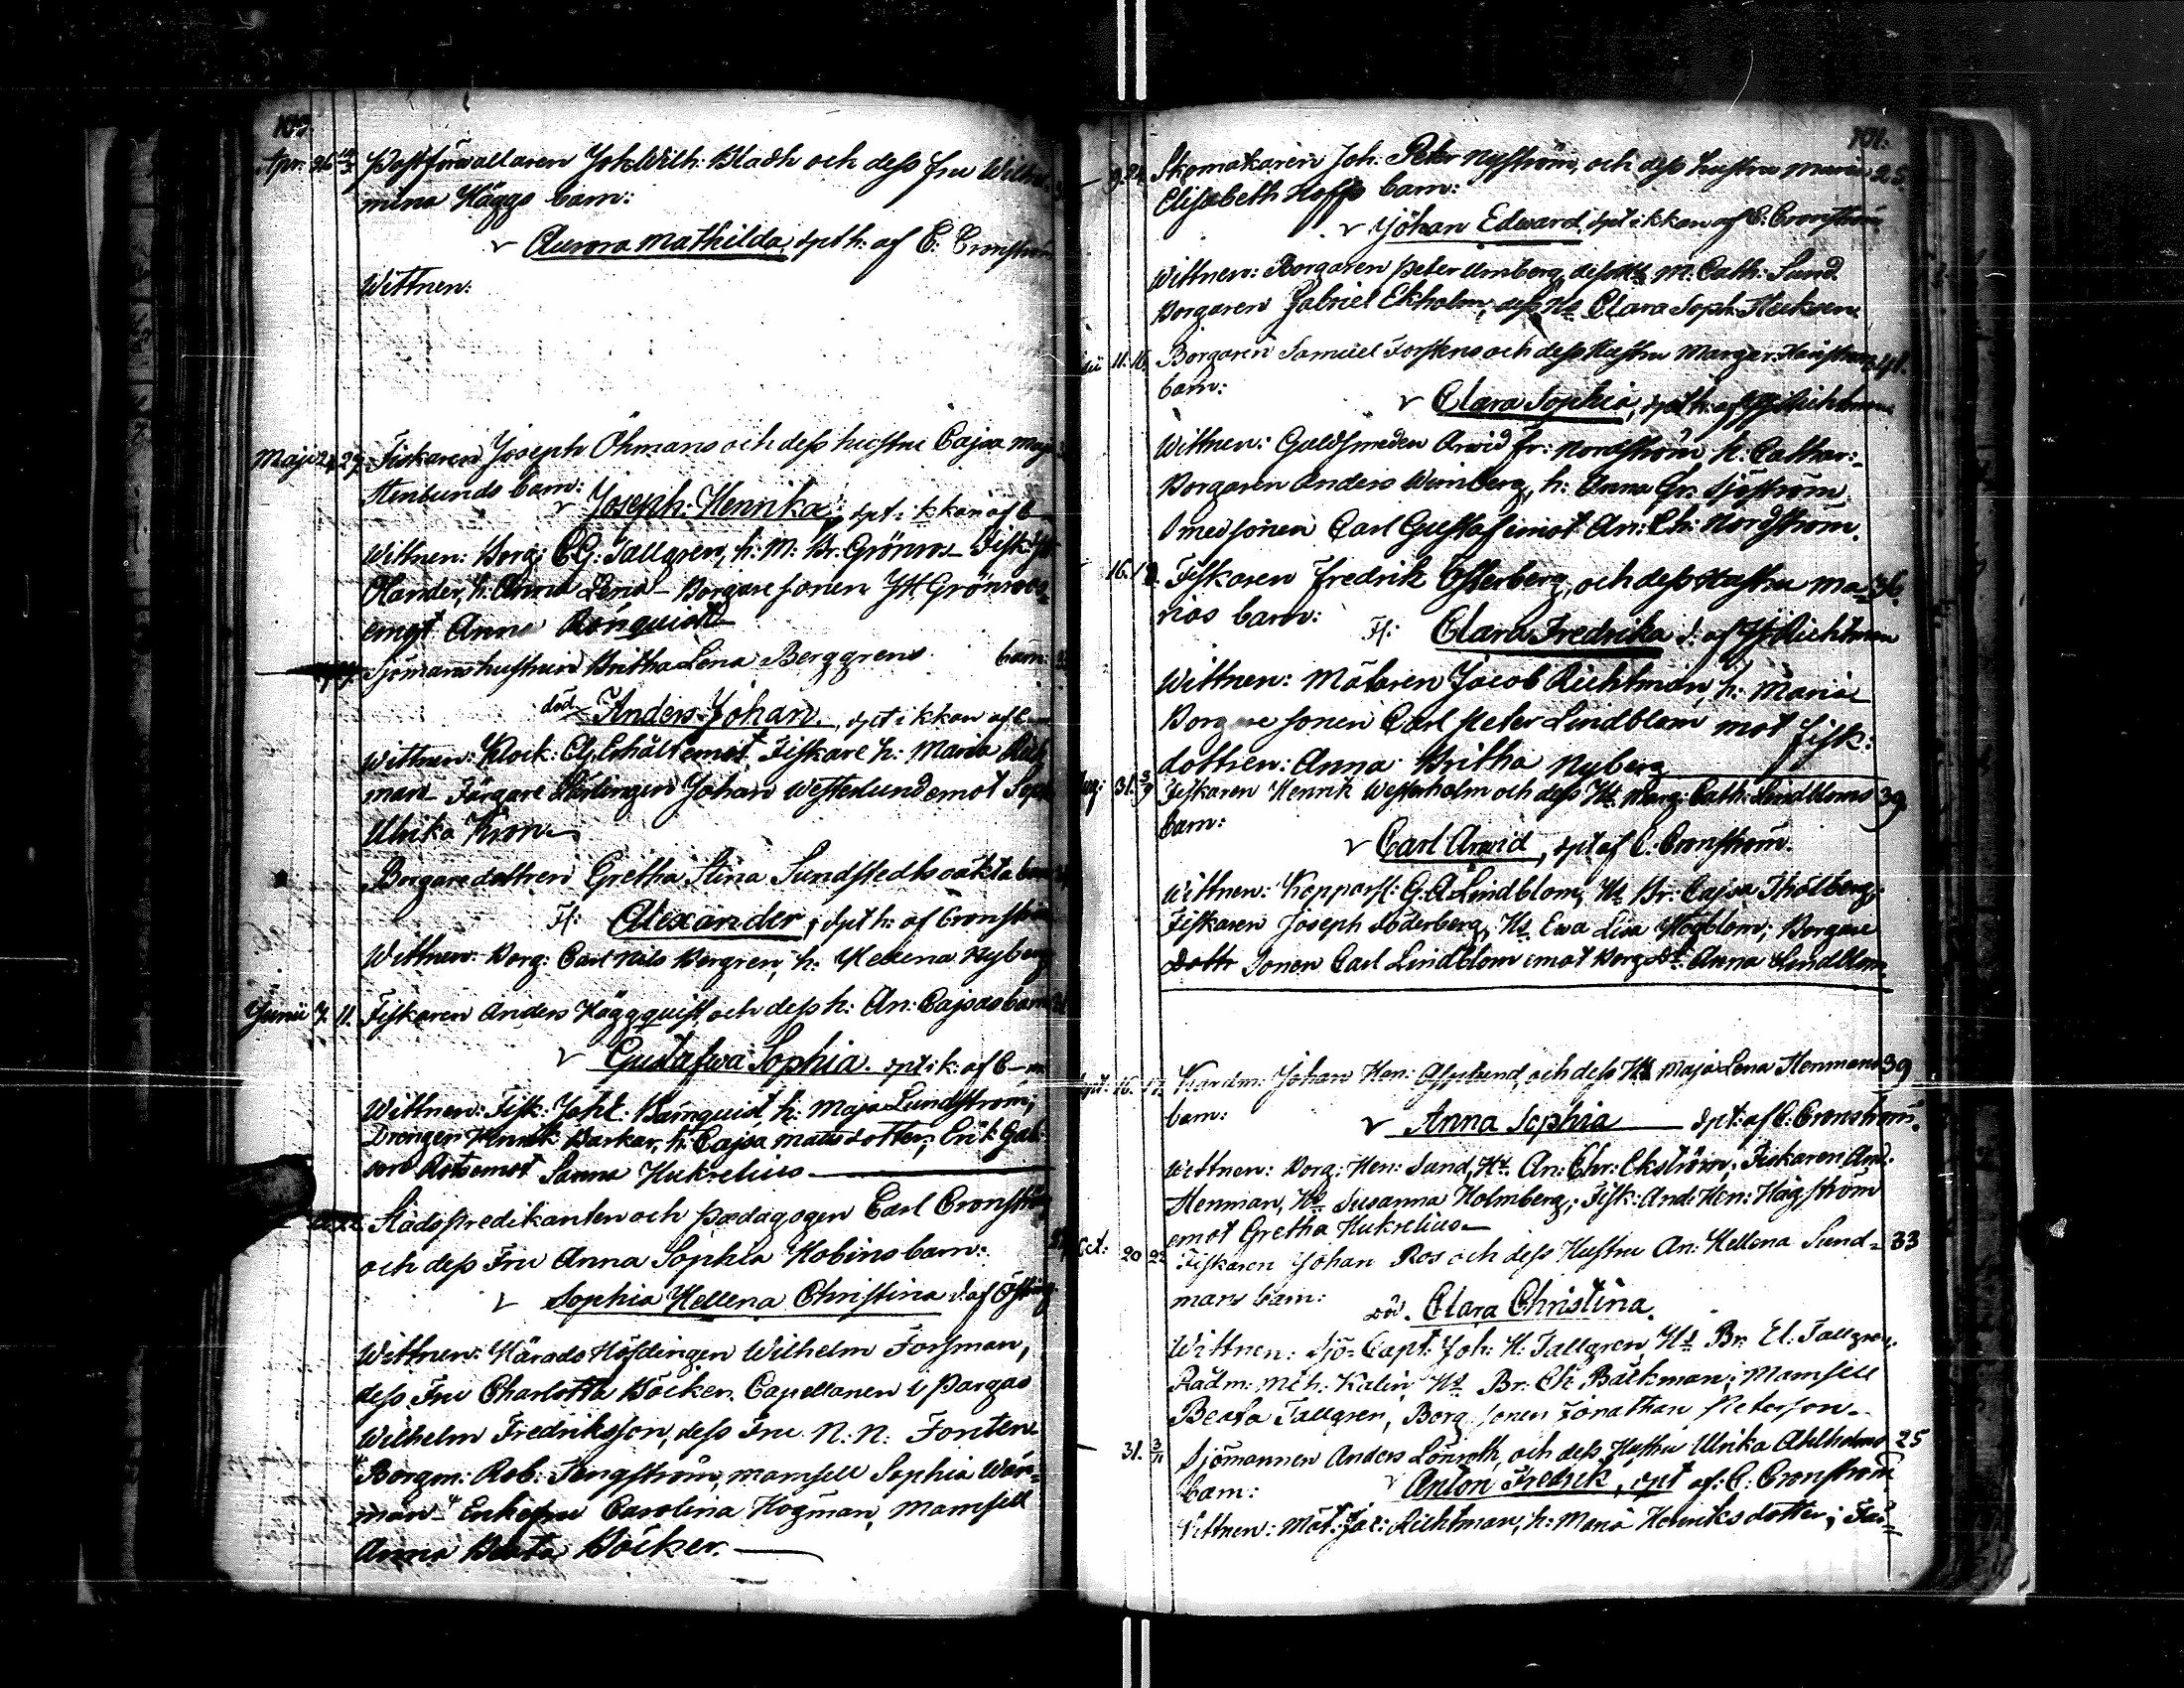 Apr. 26 Postförvaltaren Joh: Wilh: Bladh och dess fru Wilhel-
mina Häggs barn:
Aurora Mathilda, dpt h: af C: Cronström
Wittnen:
Maji 24 29 Fiskaren Joseph Öhmans och dess hustru Cajsa Maja
Stenlunds barn:
Joseph Henrika, dpt i kkan af C
Wittnen: Borg: C.G. Tallgren, h: M: Br. Grönros Fisk:
Olander, h: Anna Lena - Borgare sonen Grönroos
emot Anna Rönquist
Sjömans hustrun Britha Lena Berggrens barn:
död Anders Johan, dpt i kkan af C
Wittnen: Klock: emot Fiskare h: Maria Rich
man - Färgare Lärlingen Johan Westerlund emot Soph
Ulrika
Borgare dottren Gretha Stina Sundstedts oäkta barn
Alexander, dpt h: af Cronström
Wittnen: Borg: Carl Nils Bergren, h: Helena Nyberg
Junii 7. 11. Fiskaren Anders Häggquist och dess h: An: Cajsas barn
Gustafwa Sophia. dpt i k: af C
Wittnen: Fisk: h: Maja Lundström;
Drengen Henrik Barkar, h: Cajsa Matsdotter; Erik Gab:
son emot Sanna Hukselius
Stads predikanten och Pædagogen Carl Cronström
och dess Fru Anna Sophia Hobins barn:
Sophia Hellena Christina d. af
Wittnen: Härads Höfdingen Wilhelm Forsman,
dess Fru Charlotta Böcker. Capellanen i Pargas
Wilhelm Fredriksson, dess Fru N: N: Fonten
Borgm: Rob: Tengström, mamsell Sophia Wår-
man - Enkefru Carolina Hogman, Mamsell
Anna Beata Böcker.
101.
9. 24. Skomakaren Joh: Peter Nyström, och dess hustru Maria 25.
Elisabeth Hoffs barn:
Johan Edward, dpt i kkan af C: Cronström
Wittnen: Borgaren Peter Umberg, dess Hu M: Cath: Sund
Borgaren Gabriel Ekholm, dess Hu Clara Soph:
11. 16. Borgaren Samuel Forstens och dess Hustru Margar: 41.
barn:
Clara Sophia, dpt h: af Richtman
Wittnen: Guldsmeden Arvid Fr: Nordström h: Cathar:
Borgaren Anders Wimberg, h: Anna Gr: Sjöström
Smedsonen Carl Gustaf emot An: Ch: Nordström.
16. 18. Fiskaren Fredrik Österberg, och dess Hustru Ma- 36.
rias barn:
Clara Fredrika d: af Richtman
Wittnen: Målaren Jacob Richtman, h: Maria
Borgare sonen Carl Peter Lindblom mot Fisk:
dottren: Anna Britha Nyberg
Aug: 31. Fiskaren Henrik Westerholm och dess Hu Marg: Cath: Lindbloms 39.
barn:
Carl Arvid, dpt af C. Cronström.
Wittnen: Kopparsl: G. A. Lindblom, Hu Br: Cajsa Thölberg;
Fiskaren Joseph Söderberg, Hu Ewa Lisa Högblom; Borgare
dottr sonen Carl Lindblom emot Borg: Dt: Anna Lindblom.
Sept: 16. 17. Johan Hen: Asplund och dess Hu Maja Lena Henmans 39
barn: Anna Sophia dpt: af C. Cronström.
Wittnen: Borg: Hen: Sund, Hu An: Chr: Ekström; Fiskaren And:
Henman, Hu Susanna Holmberg; Fisk: And: Hen: Hägström
emot Gretha Hukselius
Oct: 20 22 Fiskaren Johan Ros och dess Hustru An: Hellena Sund- 33
mans barn: död. Clara Christina.
Wittnen: Sjö-Capt: Joh: H: Tallgren, Hu Br: El: Tallgren,
Rådm: Mich: Kalin, Hu Br: Ch: Bäckman; Mamsell
Beata Tallgren, Borg: sonen Jonathan Peterson.
31. 3/11 Sjömannen Anders Lönroth, och dess Hustru Ulrika Ahlholms 25
barn: Anton Fredrik, dpt af: C: Cronström
Wittnen: Mål: Jac: Richtman, h: Maria Henriksdotter;